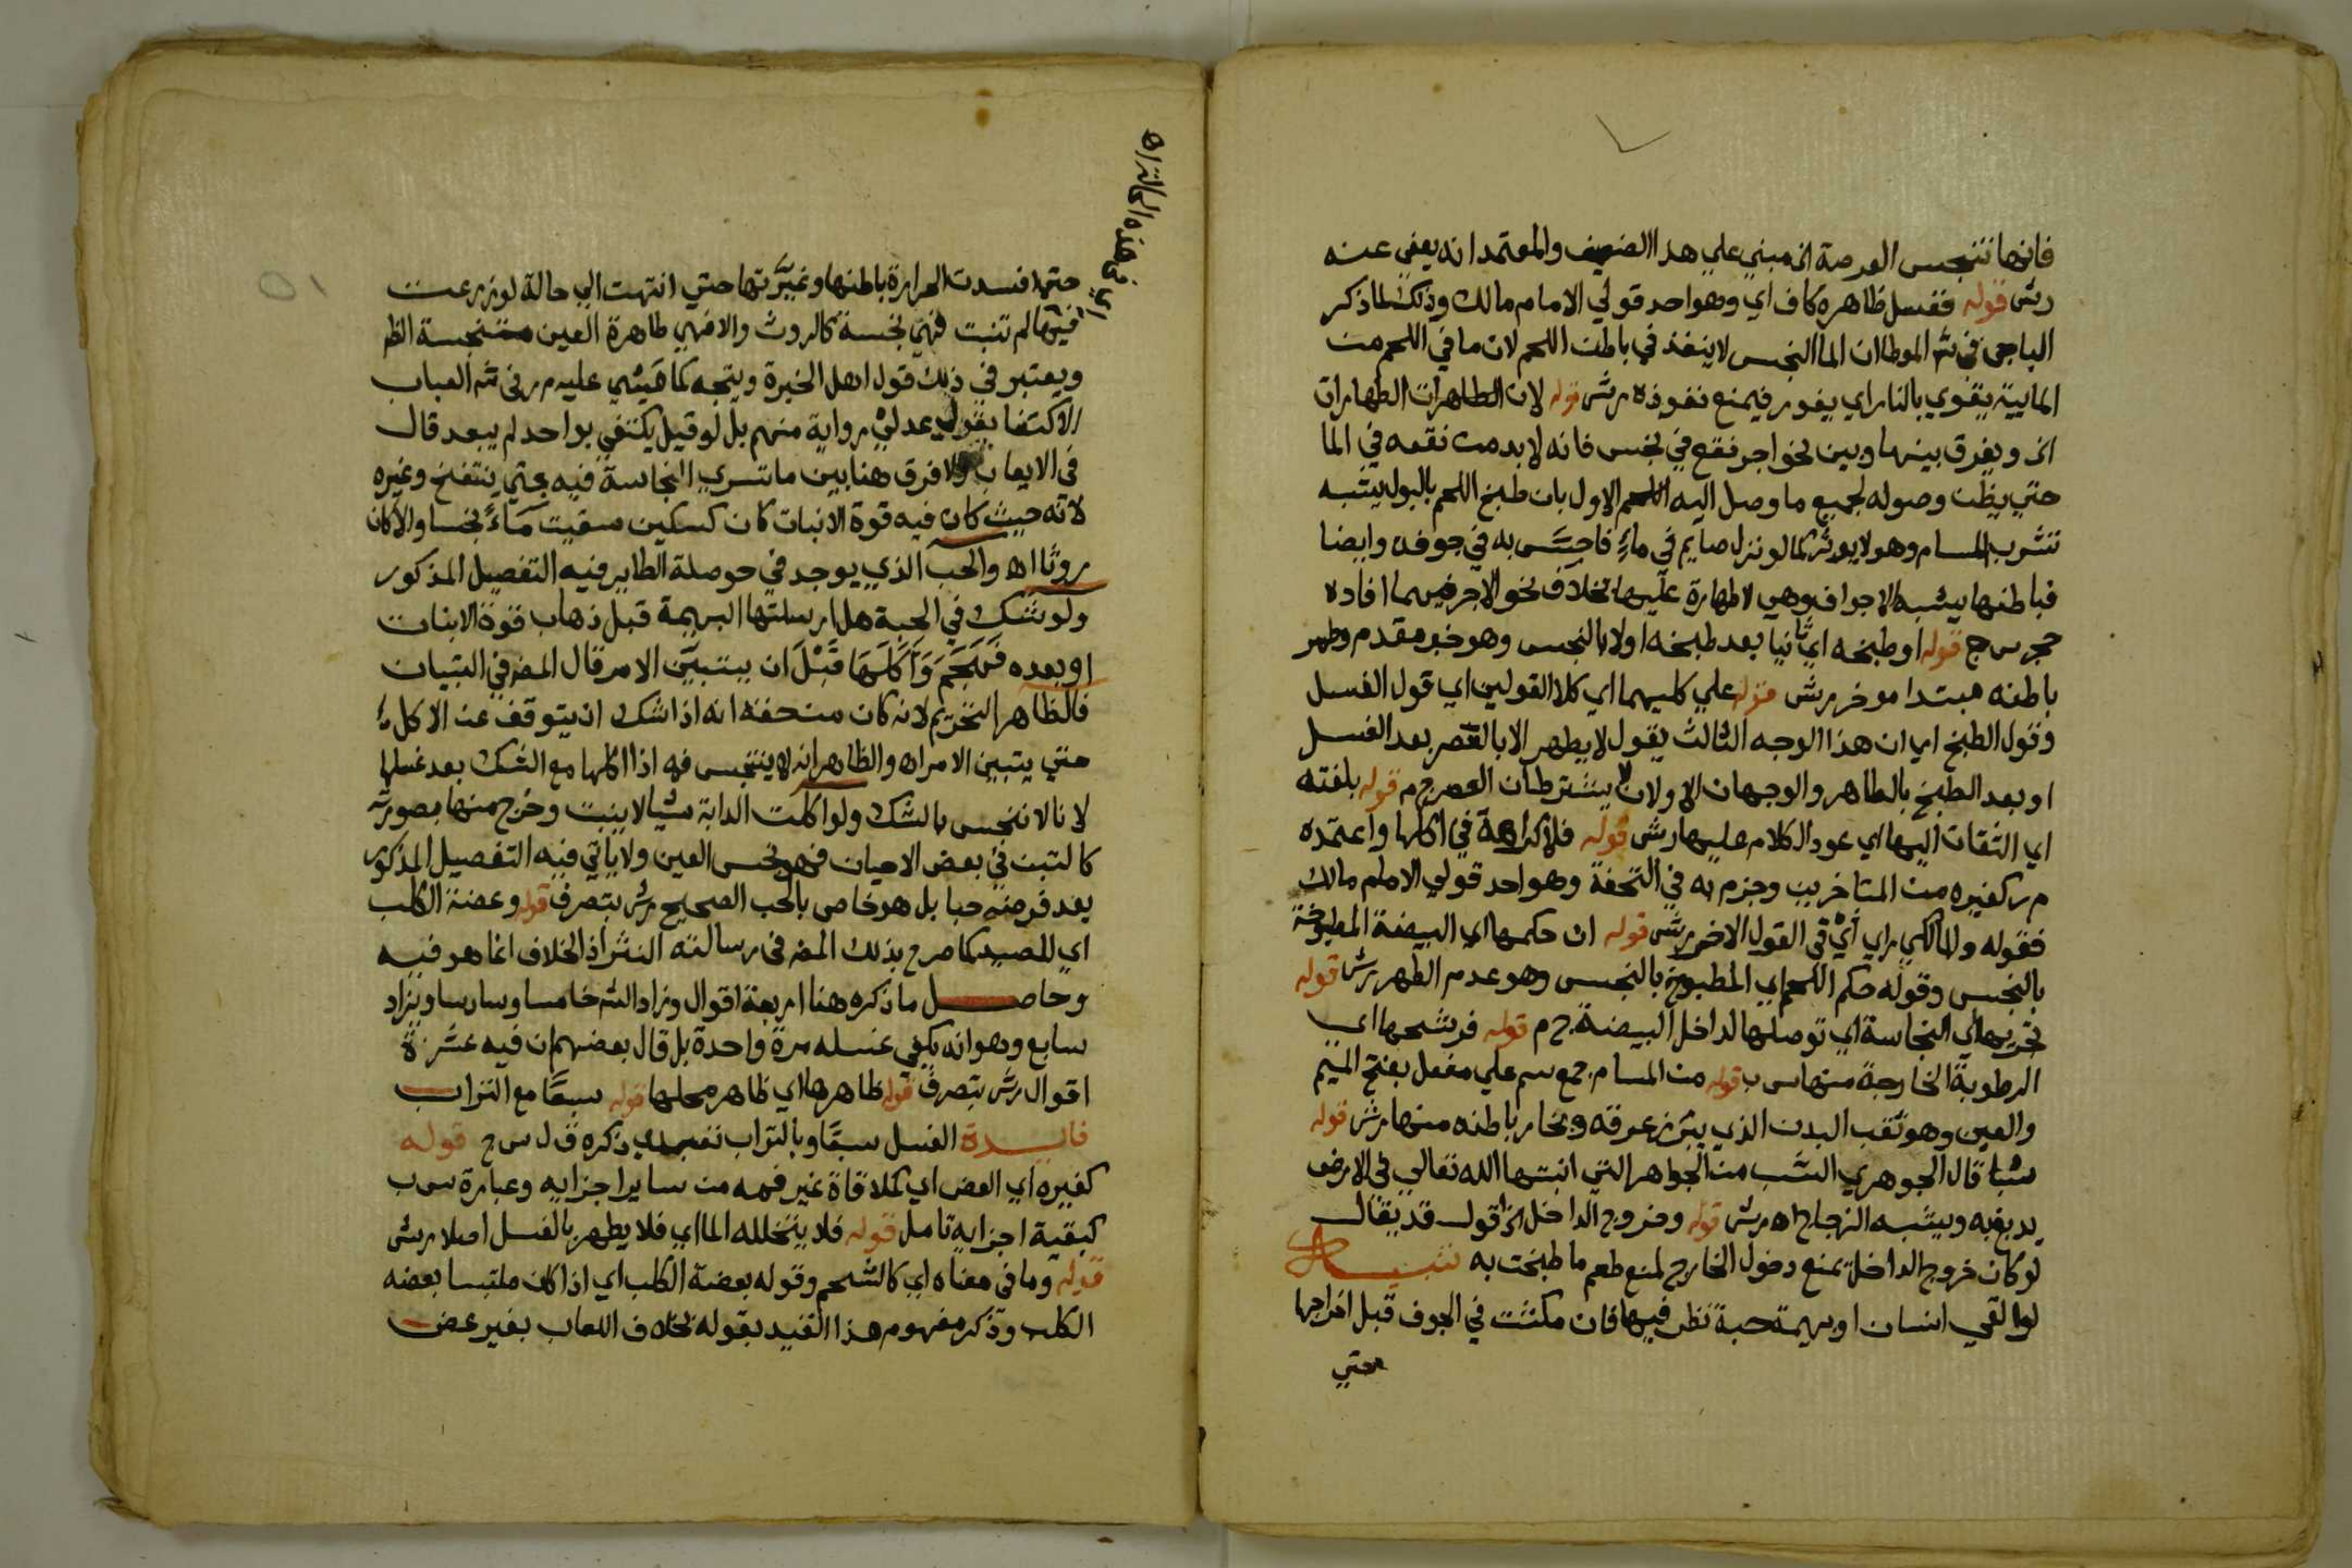 فانها تنجس الفرصة الخ مبني علي هذا الضعيف والمعتمد انه يعفي عنه
رش قوله فغسل ظاهره كاف اي وهو احد قولي الامام مالك وذلك لما ذكر
الباجي في ش الموطا ان الما النجس لا ينفذ في باطن اللحم لان ما في اللحم من
المايية يقوي بالنار اي يفور فيمنع نفوذه رش قوله لان الطاهرات الطهارات
الخ ويفرق بينها وبين نحو اجر نقع في نجس فانه لا بد من نقعه في الما
حتي يظن وصوله لجميع ما وصل اليه الاول بان طبخ اللحم بالبول يشبه
تشرب المسام وهو لا يوثر كما لو نزل صايم في ماء فاحس به في جوفه وايضا
فباطنها يشبه الاجواف وهي لا طهارة عليها بخلاف نحو الاجر فيهما افاده
حجر س ج قوله او طبخه اي ثانيا بعد طبخه اولا بالنجس وهو خبر مقدم وطهر
باطنه مبتدا موخر رش قوله علي كليهما اي كلا القولين اي قول الغسل
وقول الطبخ اي ان هذا الوجه الثالث يقول لا يطهر الا بالعصر بعد الغسل
او بعد الطبخ بالطاهر والوجهان الاولان لا يشترطان العصر ج م قوله بلغته
اي الثقات اليها اي عود الكلام عليها رش قوله فلا كراهة في اكلها واعتمده
م ر كغيره من المتاخرين وجزم به في التحفة وهو احد قولي الامام مالك
فقوله والمالكي راي اي في القول الاخر رش قوله ان حكمها اي البيضة المطبوخة
بالنجس وقوله حكم اللحم اي المطبوخ بالنجس وهو عدم الطهر رش قوله
تخريها اي النجاسة اي توصلها لداخل البيضة ج م قوله فرشحها اي
الرطوبة الخارجة منها س ب قوله من المسام جمع سم علي مفعل بفتح الميم
والعين وهو ثقب البدن الذي يبرز عرقه وبخار باطنه منها رش قوله
شبا قال الجوهري الشب من الجواهر التي انبتها الله تعالي في الارض
يدبغ به ويشبه الزجاج اه رش قوله وخروج الداخل الخ اقول قد يقال
لو كان خروج الداخل يمنع دخول الخارج لمنع طعم ما طبخت به تنبيه
لو القي انسان او بهيمة حبة نظر فيها فان مكثت في الجوف قبل اخراجها
حتي
اي في هذه الحالة اه
حتي افسدت الحرارة باطنها وغيرتها حتي انتهت الي حالة لو زرعت
فيها لم تنبت فهي نجسة كالروث والا فهي طاهرة العين متنجسة الظ
ويعتبر في ذلك قول اهل الخبرة ويتجه كما مشي عليه م ر في ش العباب
الاكتفا بقول عدلي رواية منهم بل لو قيل يكتفي بواحد لم يبعد قال
في الايعاب ولا فرق هنا بين ما تسري النجاسة فيه حتي ينتفخ وغيره
لانه حيث كان فيه قوة الانبات كان كسكين سقيت ماء نجسا والا كان
روثا اه والحب الذي يوجد في حوصلة الطاير فيه التفصيل المذكور
ولو شك في الحبة هل ارسلتها البهيمة قبل ذهاب قوة الانبات
او بعده فهجم واكلها قبل ان يتبين الامر قال المض في التبيان
فالظاهر التحريم لانه كان من حقه انه اذا شك ان يتوقف عن الاكل
حتي يتبين الامر اه والظاهر انه لا ينتجس فمه اذا اكلها مع الشك بعد غسلها
لانا لا ننجس بالشك ولو اكلت الدابة شيا لا ينبت وخرج منها بصورته
كالتبن في بعض الاحيان فهو نجس العين ولا ياتي فيه التفصيل المذكور
بعد فرضه حبا بل هو خاص بالحب الصحيح رش بتصرف قوله وعضة الكلب
اي للصيد كما صرح بذلك المض في رسالته النشر اذ الخلاف انما هو فيه
وحاصل ما ذكره هنا اربعة اقوال وزاد الش خامسا وسادسا ويزاد
سابع وهو انه يكفي غسله مرة واحدة بل قال بعضهم ان فيه عشرة
اقوال رش بتصرف قوله ظاهرها اي ظاهر محلها قوله سبعا مع التراب
فايدة الغسل سبعا وبالتراب تعبدي ذكره ق ل س ج قوله
كغيره اي العض اي كملاقاة غير فمه من ساير اجزايه وعبارة س ب
كبقية اجزايه تامل قوله فلا يتخلله الما اي فلا يطهر بالغسل اصلا رش
قوله وما في معناه اي كالشحم وقوله بعضة الكلب اي اذا كان ملتبسا بعضه
الكلب وذكر مفهوم هذا القيد بقوله بخلاف اللعاب بغير عض